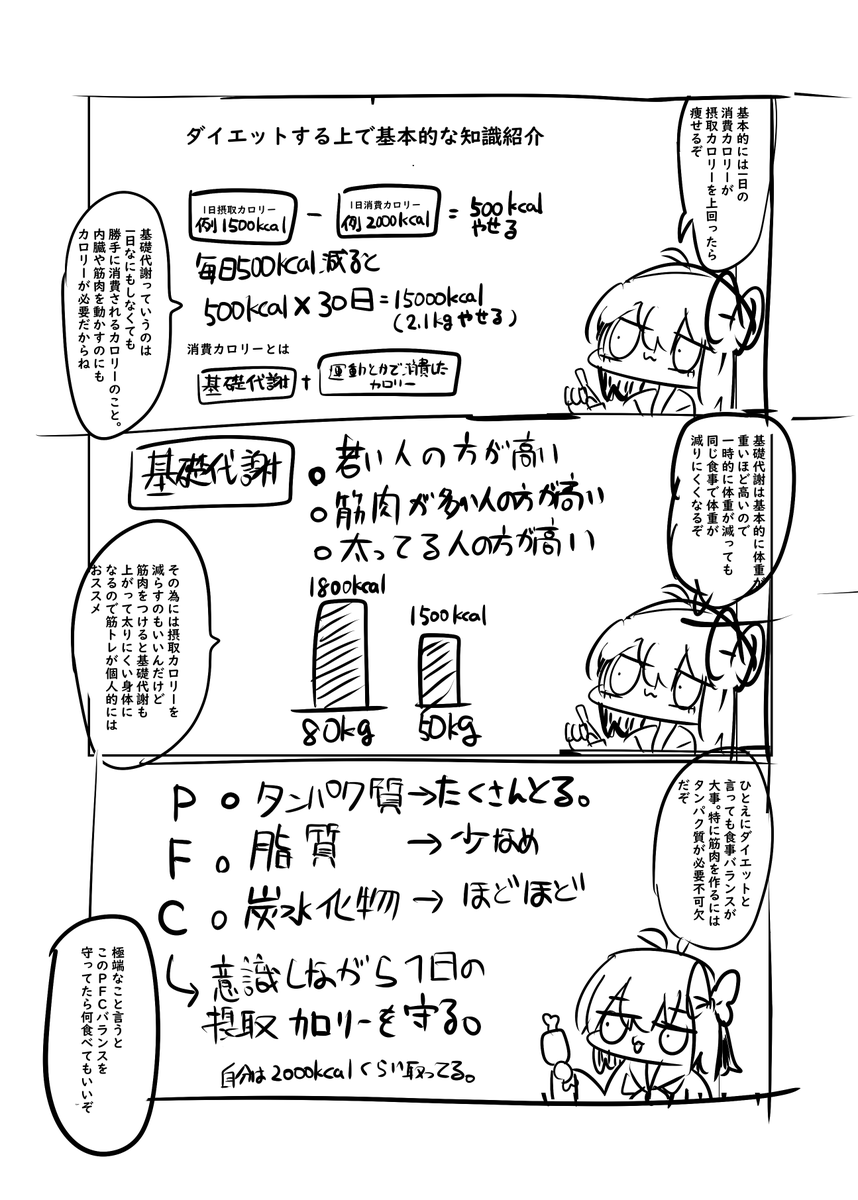 ダイエットする上で基本的な知識紹介
基本的には一日の
消費カロリーが
摂取カロリーを上回ったら
痩せるぞ
1日摂取カロリー
例1500kcal
－
1日消費カロリー
例2000kcal
= 500kcal
やせる
毎日500kcal減ると
500kcal×30日=15000kcal
(2.1kgやせる)
消費カロリーとは
基礎代謝
+
運動とかで消費した
カロリー
基礎代謝っていうのは
一日なにもしなくても
勝手に消費されるカロリーのこと。
内臓や筋肉を動かすのにも
カロリーが必要だからね
基礎代謝は基本的に体重が
重いほど高いので
一時的に体重が減っても
同じ食事で体重が
減りにくくなるぞ
基礎代謝
若い人の方が高い
筋肉が多い人の方が高い
太ってる人の方が高い
1800kcal
1500kcal
80kg
50kg
その為には摂取カロリーを
減らすのもいいんだけど
筋肉をつけると基礎代謝も
上がって太りにくい身体に
なるので筋トレが個人的には
おススメ
ひとえにダイエットと
言っても食事バランスが
大事。特に筋肉を作るには
タンパク質が必要不可欠
だぞ
P タンパク質→たくさんとる。
F 脂質 →少なめ
C 炭水化物→ほどほど
意識しながら1日の
摂取カロリーを守る。
自分は2000kcalくらい取ってる。
極端なこと言うと
このPFCバランスを
守ってたら何食べてもいいぞ